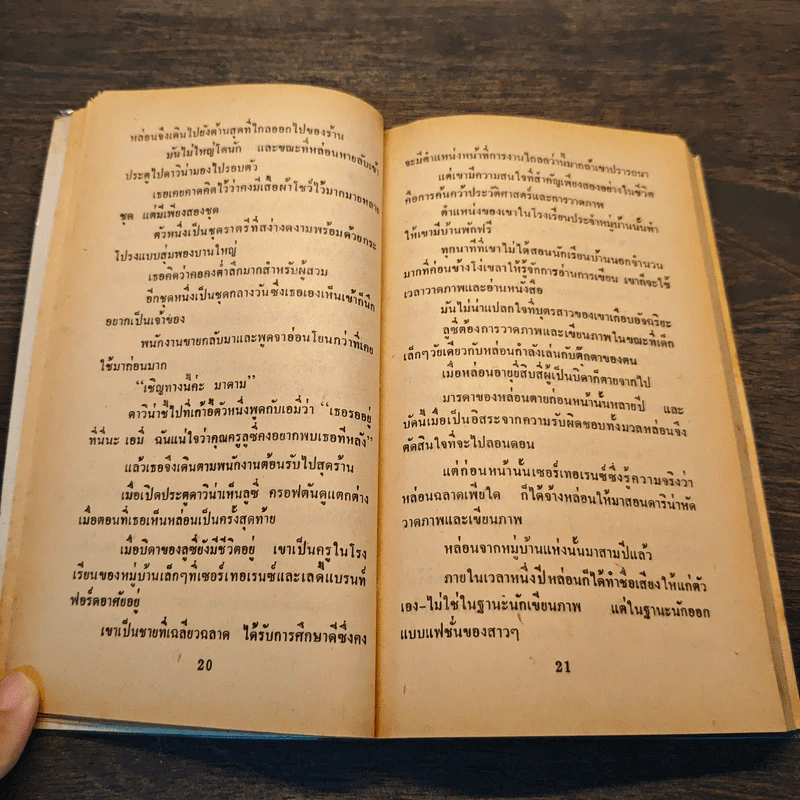 หล่อนจึงเดินไปยังด้านสุดที่ไกลออกไปของร้าน
มันไม่ใหญ่โตนัก และขณะที่หล่อนหายลับเข้า
ประตูไปดาวิน่ามองไปรอบตัว
เธอเคยคาดคิดไว้ว่าคงมีเสื้อผ้าโชว์ไว้มากมายหลาย
ชุด แต่มีเพียงสองชุด
ตัวหนึ่งเป็นชุดราตรีที่สง่างดงามพร้อมด้วยกระ
โปรงแบบสุ่มพองบานใหญ่
เธอคิดว่าคอคงต่ำลึกมากสำหรับผู้สวม
อีกชุดหนึ่งเป็นชุดกลางวันซึ่งเธอเองเห็นเข้าก็นึก
อยากเป็นเจ้าของ
พนักงานขายกลับมาและพูดจาอ่อนโยนกว่าที่เคย
ใช้มาก่อนมาก
“เชิญทางนี้ค่ะ มาดาม”
ดาวิน่าชี้ไปที่เก้าอี้ตัวหนึ่งพูดกับเอมี่ว่า “เธอรออยู่
ที่นี่นะ เอมี่ ฉันแน่ใจว่าคุณครูลูซี่คงอยากพบเธอทีหลัง”
แล้วเธอจึงเดินตามพนักงานต้อนรับไปสุดร้าน
เมื่อเปิดประตูดาวิน่าเห็นลูซี่ ครอฟตันดูแตกต่าง
เมื่อตอนที่เธอเห็นหล่อนเป็นครั้งสุดท้าย
เมื่อบิดาของลูซี่ยังมีชีวิตอยู่ เขาเป็นครูในโรง
เรียนของหมู่บ้านเล็กๆที่เซอร์เทอเรนซ์และเลดี้แบรนท์
ฟอร์ดอาศัยอยู่
เขาเป็นชายที่เฉลียวฉลาด ได้รับการศึกษาดีซึ่งคง
20
จะมีตำแหน่งหน้าที่การงานไกลกว่านี้มากถ้าเขาปรารถนา
แต่เขามีความสนใจที่สำคัญเพียงสองอย่างในชีวิต
คือการค้นคว้าประวัติศาสตร์และการวาดภาพ
ตำแหน่งของเขาในโรงเรียนประจำหมู่บ้านนั้นทำ
ให้เขามีบ้านพักฟรี
ทุกนาทีที่เขาไม่ได้สอนนักเรียนบ้านนอกจำนวน
มากที่ค่อนข้างโง่เขลาให้รู้จักการอ่านการเขียน เขาก็จะใช้
เวลาวาดภาพและอ่านหนังสือ
มันไม่น่าแปลกใจที่บุตรสาวของเขาเกือบอัจฉริยะ
ลูซี่ต้องการวาดภาพและเขียนภาพในขณะที่เด็ก
เล็กๆวัยเดียวกับหล่อนกำลังเล่นกับตุ๊กตาของตน
เมื่อหล่อนอายุยี่สิบสี่ผู้เป็นบิดาก็ตายจากไป
มารดาของหล่อนตายก่อนหน้านั้นหลายปี และ
บัดนี้เมื่อเป็นอิสระจากความรับผิดชอบทั้งมวลหล่อนจึง
ตัดสินใจที่จะไปลอนดอน
แต่ก่อนหน้านั้นเซอร์เทอเรนซ์ซึ่งรู้ความจริงว่า
หล่อนฉลาดเพียงใด ก็ได้จ้างหล่อนให้มาสอนดาวิน่าหัด
วาดภาพและเขียนภาพ
หล่อนจากหมู่บ้านแห่งนั้นมาสามปีแล้ว
ภายในเวลาหนึ่งปีหล่อนก็ได้ทำชื่อเสียงให้แก่ตัว
เอง-ไม่ใช่ในฐานะนักเขียนภาพ แต่ในฐานะนักออก
แบบแฟชั่นของสาวๆ
21